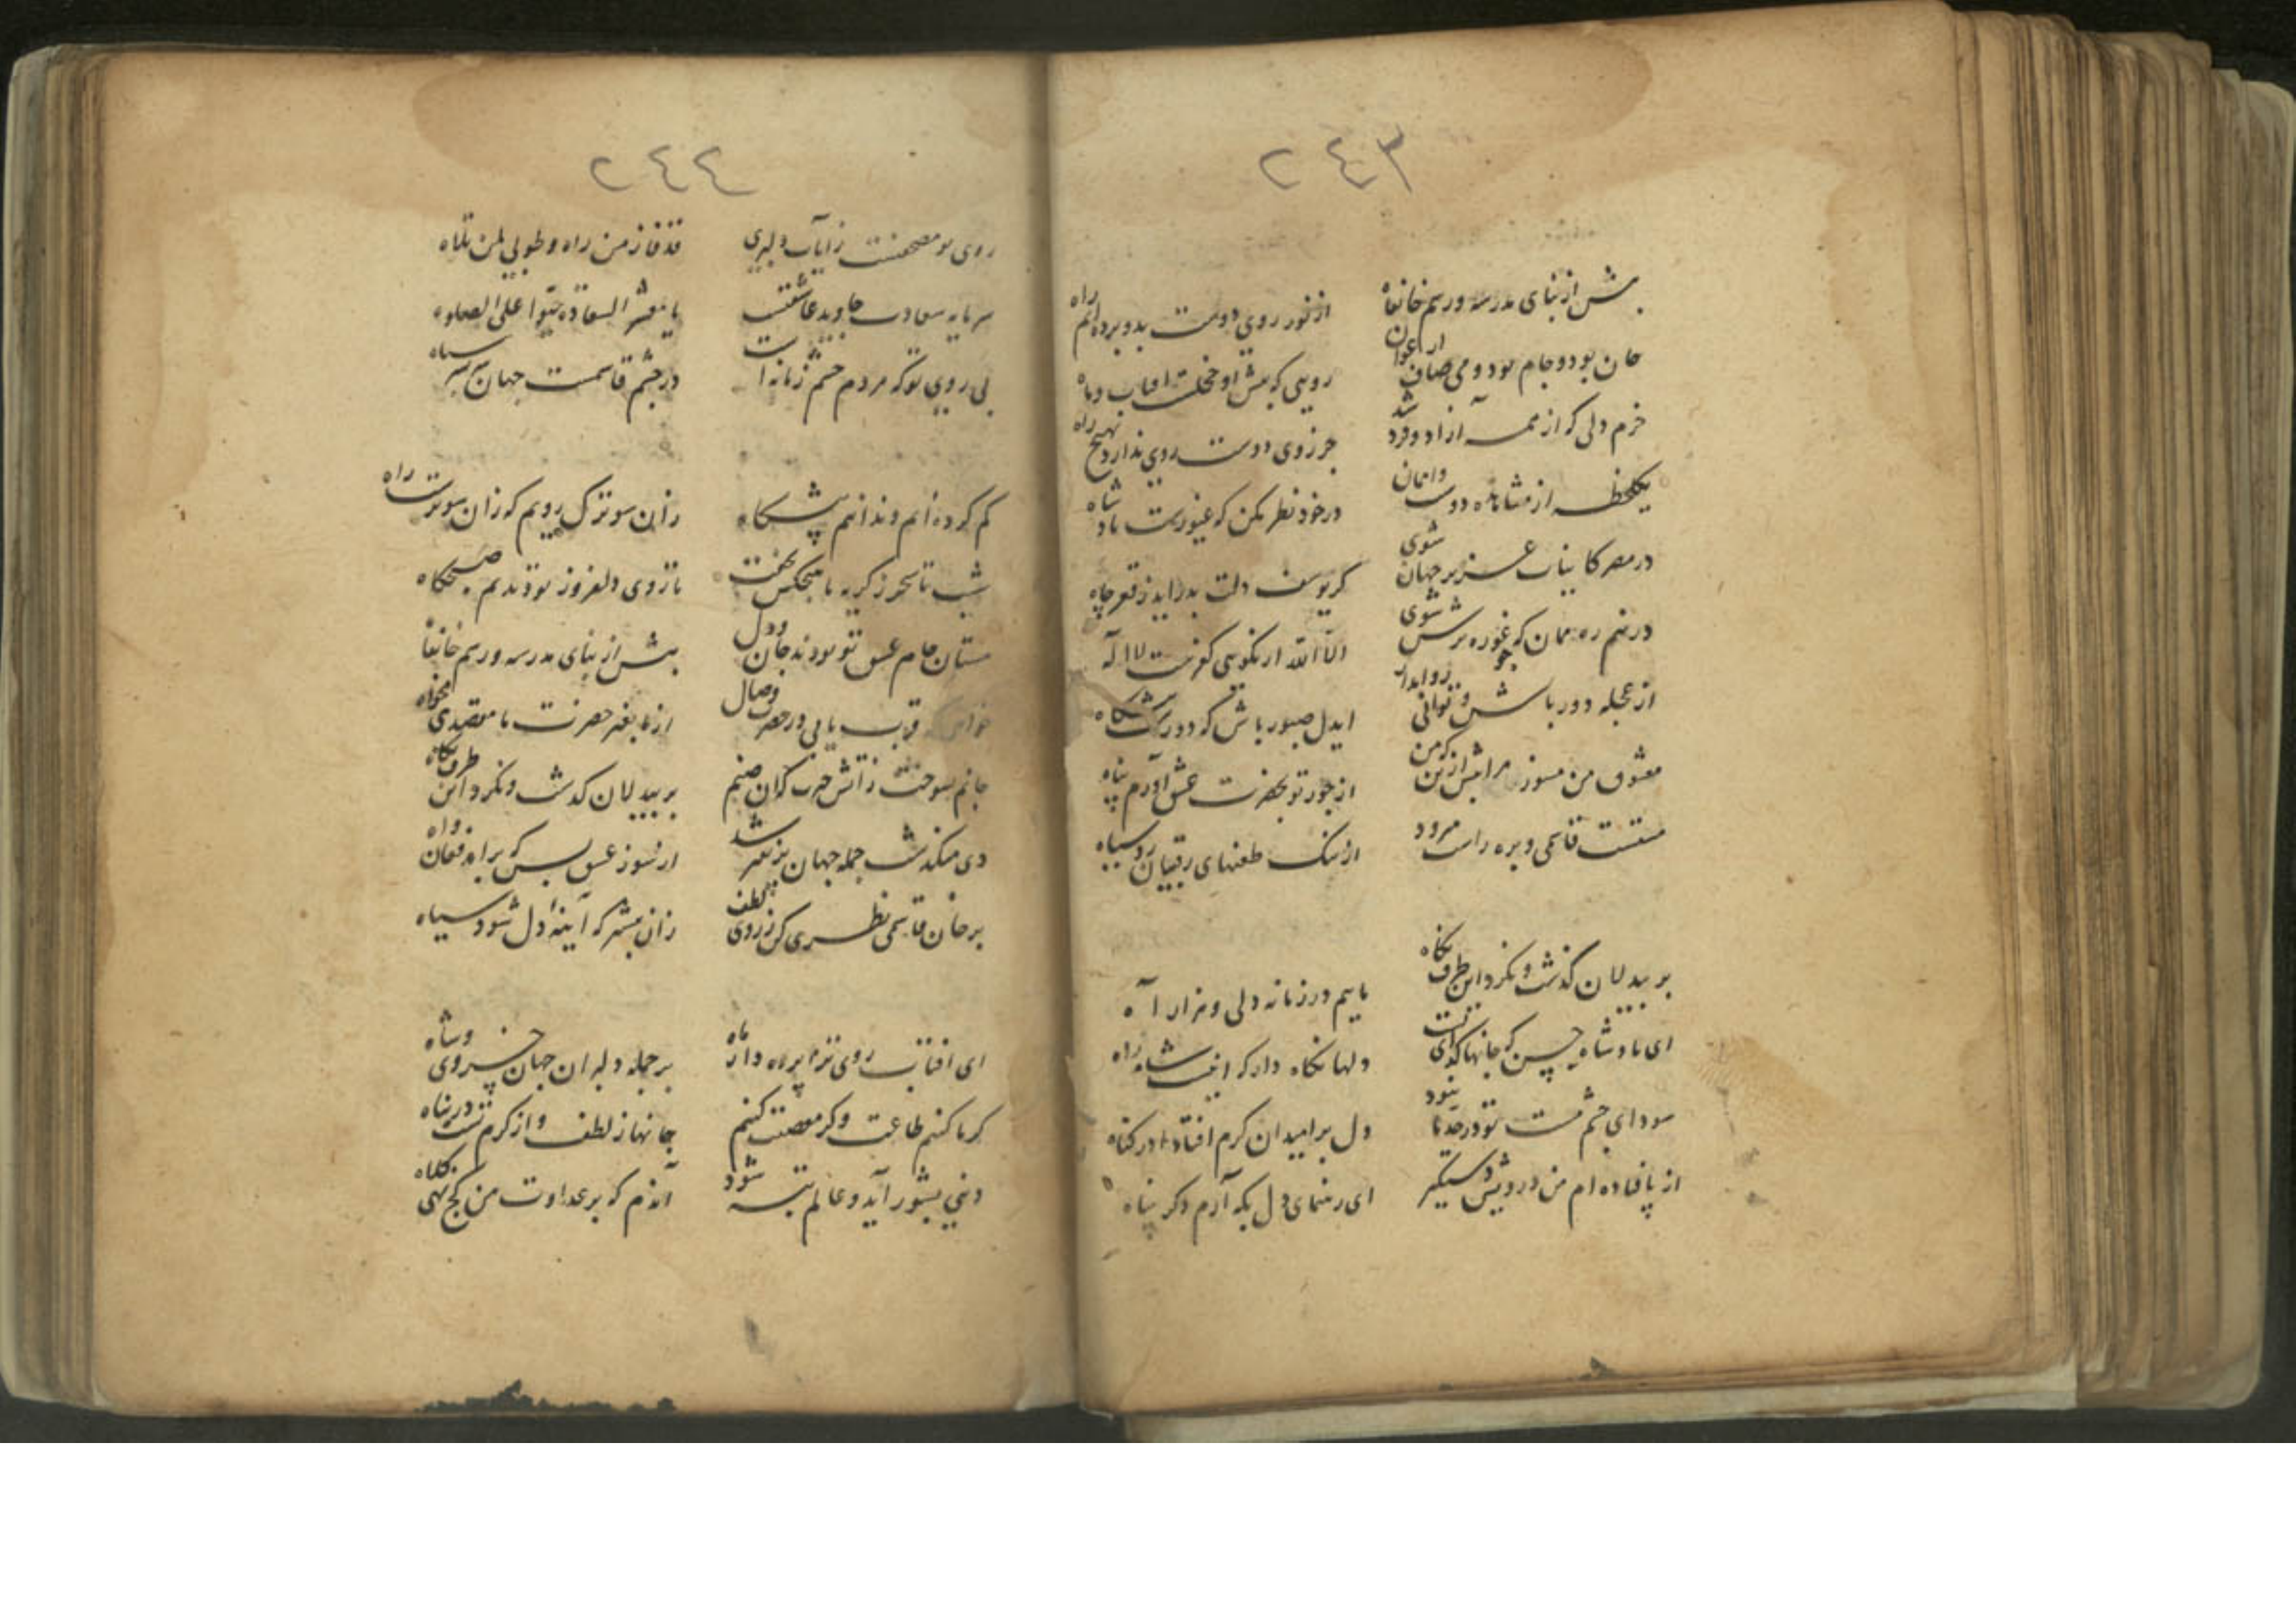 ٢٤٣
پیش از بنای مدرسه و رسم خانقاه
از نور روی دوست بدو برده‌ایم راه
جان بود و جام بود و می صاف ارغوان
رویی که پیش او خجلست افتاب و ماه
خرم دلی که از همه آزاد و فرد شد
جز روی دوست روی ندارد بهیچ راه
یکلحظه از مشاهده دوست وامان
در خود نظر مکن که غیورست پادشاه
در مصر کاینات عزیز جهان شوی
کر یوسف دلت بدراید ز قعر چاه
الا الله ار نکویی کفرست لا اله
از عجله دور باش
ایدل صبور باش که دورست
معشوق من مسوز مرا بیش ازین که من
از جور تو بحضرت عشق آورم پناه
مستست قاسمی و بره راست میرود
از سنک طعنهای رقیبان رو سیاه
بر بیدلان گذشت و نکرد این طرف نکاه
ماییم در زمانه دلی و هزار آه
ای پادشاه حسن که جانها کدای تست
دلها نکاه دار که اینست شاه راه
سودای چشم مست تو در حد ما نبود
دل بر امید ان کرم افتاد در کناه
از پا فتاده ام من درویش دستگیر
ای رهنمای دل بکه آرم دکر پناه
٢٤٤
روی تو مصحفست ز آیات دلبری
قد فاز من راه و طوبی لمن تلاه
سرمایه سعادت جاوید عاشقیست
یا معشر السقاة حیوا علی الصلوه
بی روی تو که مردم چشم زمانه است
در چشم قاسمست جهان سر بسر سیاه
کم کرده ایم و ندانیم پیشکاه
زان سو ترک رویم که زان سوترست راه
شب تا سحر ز کریه ما هیچکس نخفت
تا روی دلفروز تو دیدیم صبحگاه
مستان جام عشق تو بودند جان و دل
پیش از بنای مدرسه و رسم خانقاه
قرب یابی در حضرت وصال
از ما بغیر حضرت ما مقصدی مخواه
جانم بسوخت ز آتش حیرت که آن صنم
بر بیدلان گذشت و نکرد این طرف نکاه
دی میکذشت جمله جهان پر نفیر شد
از سوز عشق بس که برامد فغان و اه
بر جان قاسمی نظری کن ز روی لطف
زان پیشتر که آینهٔ دل شود سیاه
ای افتاب روی ترا پرده دار ماه
بر جمله دلبران جهان خسروی و شاه
کر ما کنیم طاعت و کر معصیت کنیم
جانها ز لطف و از کرم تست در پناه
دنیی بشور آید و عالم تبه شود
آندم که بر عداوت من کج نهی کلاه